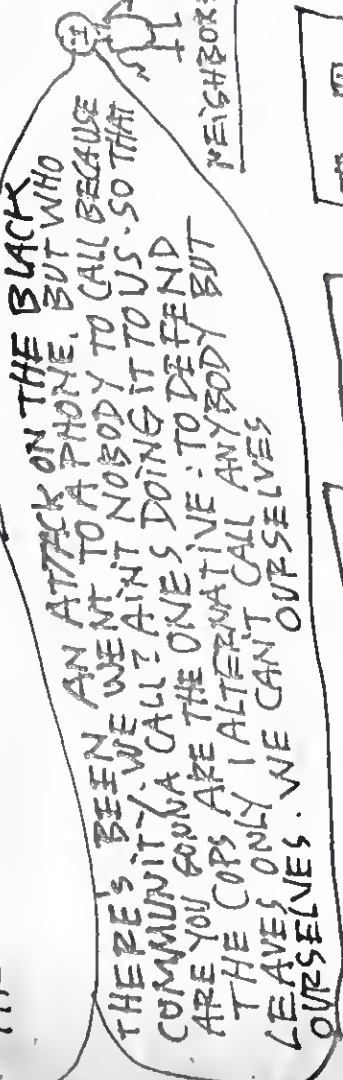 THERE'S BEEN AN ATTACK ON THE BLACK
COMMUNITY. WE WENT TO A PHONE. BUT WHO
ARE YOU GONNA CALL? AIN'T NOBODY TO CALL BECAUSE
THE COPS ARE THE ONES DOING IT TO US. SO THAT
LEAVES ONLY 1 ALTERNATIVE: TO DEFEND
OURSELVES. WE CAN'T CALL ANYBODY BUT
OURSELVES
NEIGHBOR